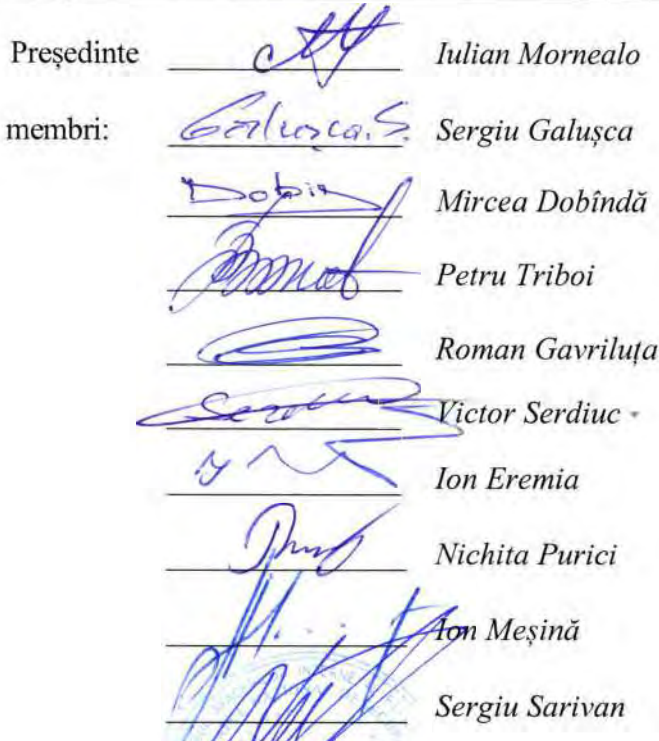 Președinte Iulian Mornealo
membri: Galușca.S. Sergiu Galușca
Dobîn Mircea Dobîndă
Petru Triboi
Roman Gavriluța
Victor Serdiuc
Ion Eremia
Nichita Purici
Ion Meșină
Sergiu Sarivan